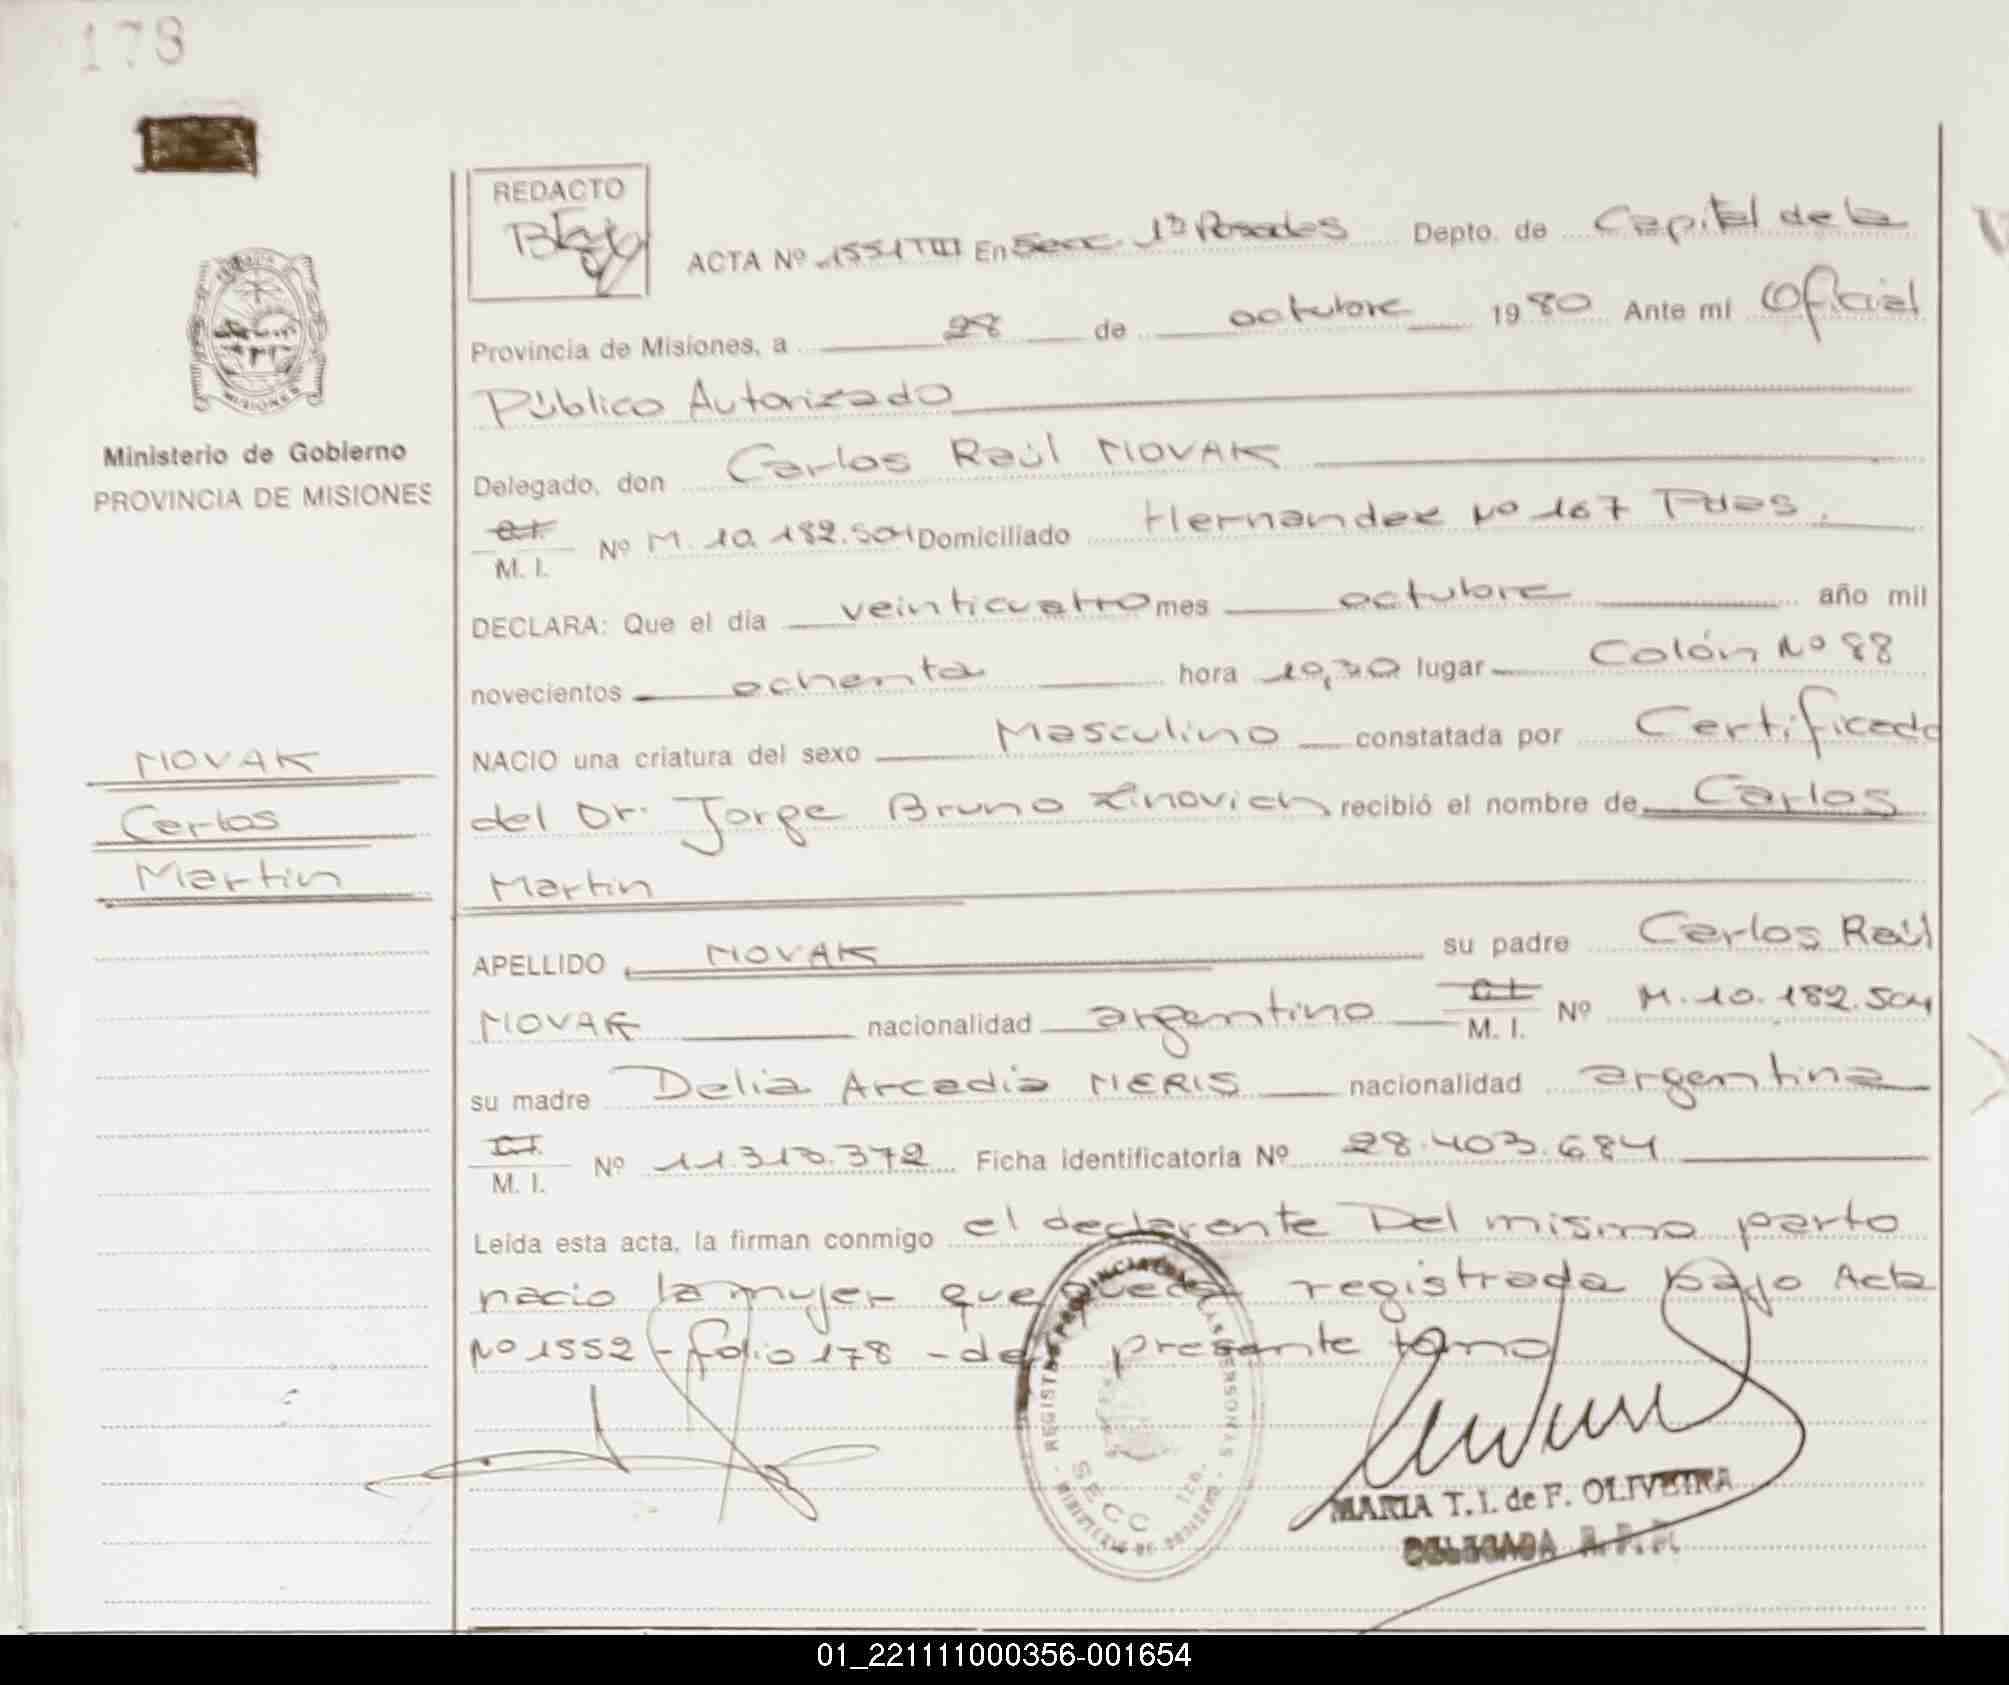 178
REDACTO
ACTA Nº 1551 TIII En Secc. 1ª Posadas Depto. de Capital de la
Provincia de Misiones, a 28 de octubre 1980 Ante mí Oficial
Público Autorizado
Ministerio de Gobierno
PROVINCIA DE MISIONES
Delegado, don Carlos Raúl NOVAK
C.I. M. I. Nº M. 10.182.504 Domiciliado Hernandez Nº 167 Pdas.
DECLARA: Que el día veinticuatro mes octubre año mil
novecientos ochenta hora 10,30 lugar Colón Nº 88
NACIO una criatura del sexo Masculino constatada por Certificado
del Dr. Jorge Bruno Zinovich recibió el nombre de Carlos
Martin
NOVAK
Carlos
Martin
APELLIDO NOVAK su padre Carlos Raúl
NOVAK nacionalidad argentino C.I. M. I. Nº M. 10.182.504
su madre Delia Arcadia NERIS nacionalidad argentina
C.I. M. I. Nº 11.310.372 Ficha identificatoria Nº 28.403.684
Leída esta acta, la firman conmigo el declarante Del mismo parto
nacio la mujer que queda registrada bajo Acta
Nº 1552 - folio 178 - del presente tomo
SECC
MARIA T. I. de F. OLIVEIRA
DELEGADA R. P. P.
01_221111000356-001654